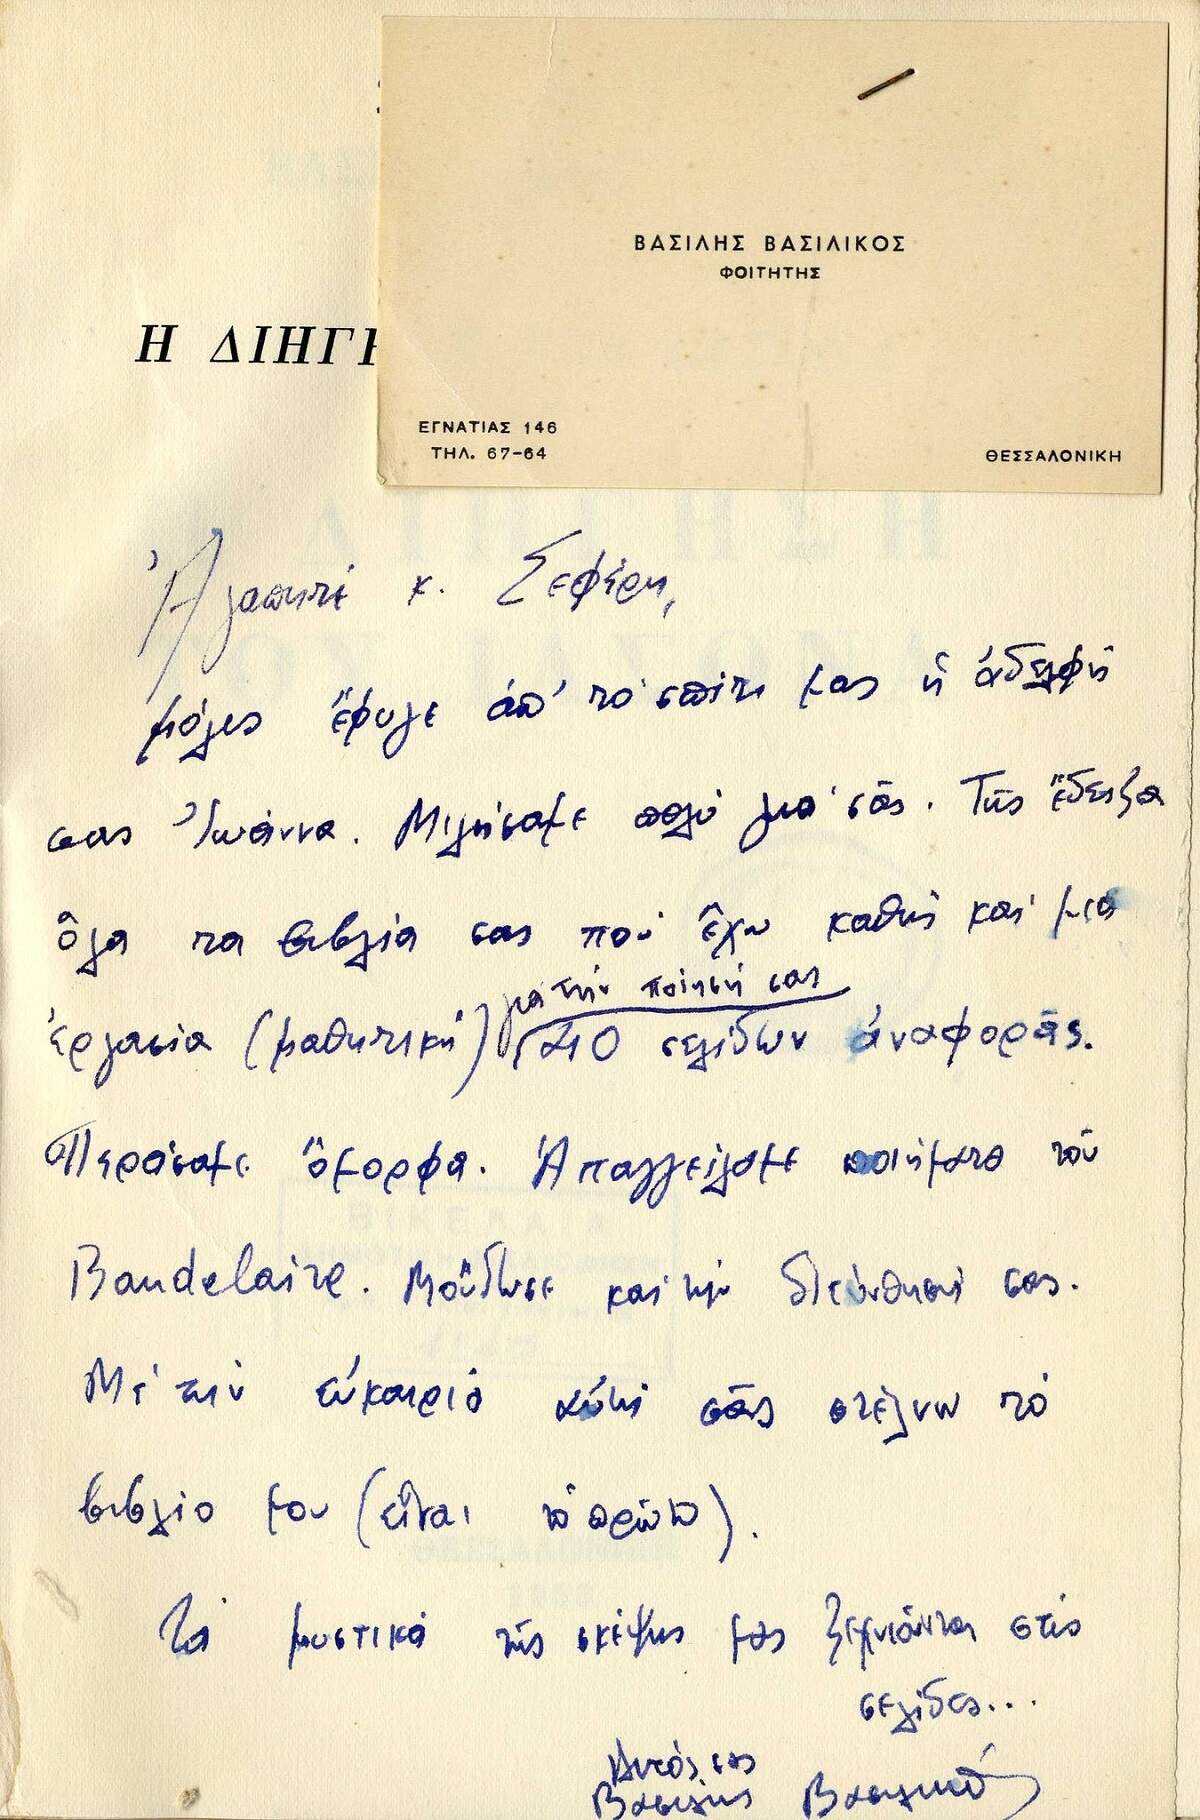 ΒΑΣΙΛΗΣ ΒΑΣΙΛΙΚΟΣ
ΦΟΙΤΗΤΗΣ
Η ΔΙΗΓΗ
ΕΓΝΑΤΙΑΣ 146
ΤΗΛ. 67-64
ΘΕΣΣΑΛΟΝΙΚΗ
Ἀγαπητέ κ. Σεφέρη,
μόλις ἔφυγε ἀπ' τὸ σπίτι μας ἡ ἀδελφή
σας Ἰωάννα. Μιλήσαμε πολύ γιὰ σᾶς. Τῆς ἔδειξα
ὅλα τα βιβλία σας ποὺ ἔχω καθὼς καὶ μιὰ
γιὰ τὴν ποίησή σας
ἐργασία (μαθητική) 210 σελίδων ἀναφορᾶς.
Περάσαμε ὄμορφα. Ἀπαγγείλαμε ποιήματα τοῦ
Baudelaire. Μοὔδωσε καὶ τὴν διεύθυνσή σας.
Μὲ τὴν εὐκαιρία αὐτὴ σᾶς στέλνω τὸ
βιβλίο μου (εἶναι τὸ πρῶτο).
Τὰ μυστικὰ τῆς σκέψης μας ξεχνιῶνται στὶς
σελίδες...
Βασίλης Βασιλικός